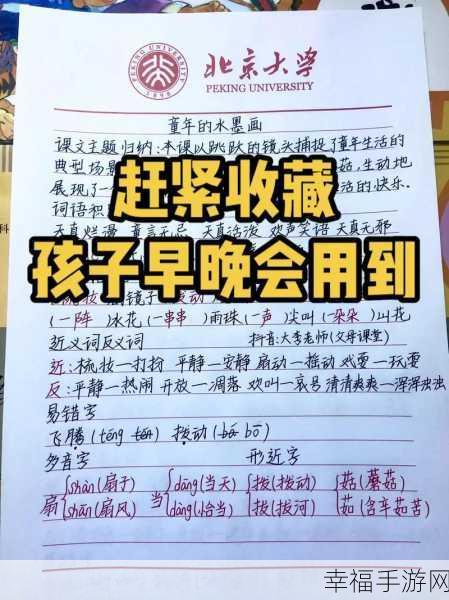 北京大学
PEKING UNIVERSITY
1898
童年的水墨画
课文主题归纳:本课以跳跃的镜头捕捉了童年生活的
典型场景
菇,生动地
展现了一
活的快乐.
词语积
赶紧收藏
天真烂漫 童言无忌 天真活泼 欢声笑语 天真无邪
孩子早晚会用到
梳妆
镜子
拨动
(一阵)水花(一串串)雨珠(一声)尖叫(一朵朵)山花
近义词反义词
抖音:大李老师(父母课堂)
近:梳妆一打扮 平静一安静 扇动一摇动 戏耍一玩耍
反:平静一热闹 开放一凋落 欢叫一哀号 清清爽爽一浑浑浊浊
易错字
飞腾(téng tén) 拨动(bá bō)
多音字
形近字
扇{shān(扇子) 当{dāng(当天) {拨(拨动) {菇(蘑菇)
shàn(扇风) dàng(恰当) 拔(拔河) 茹(含辛茹苦)
幸福手游网